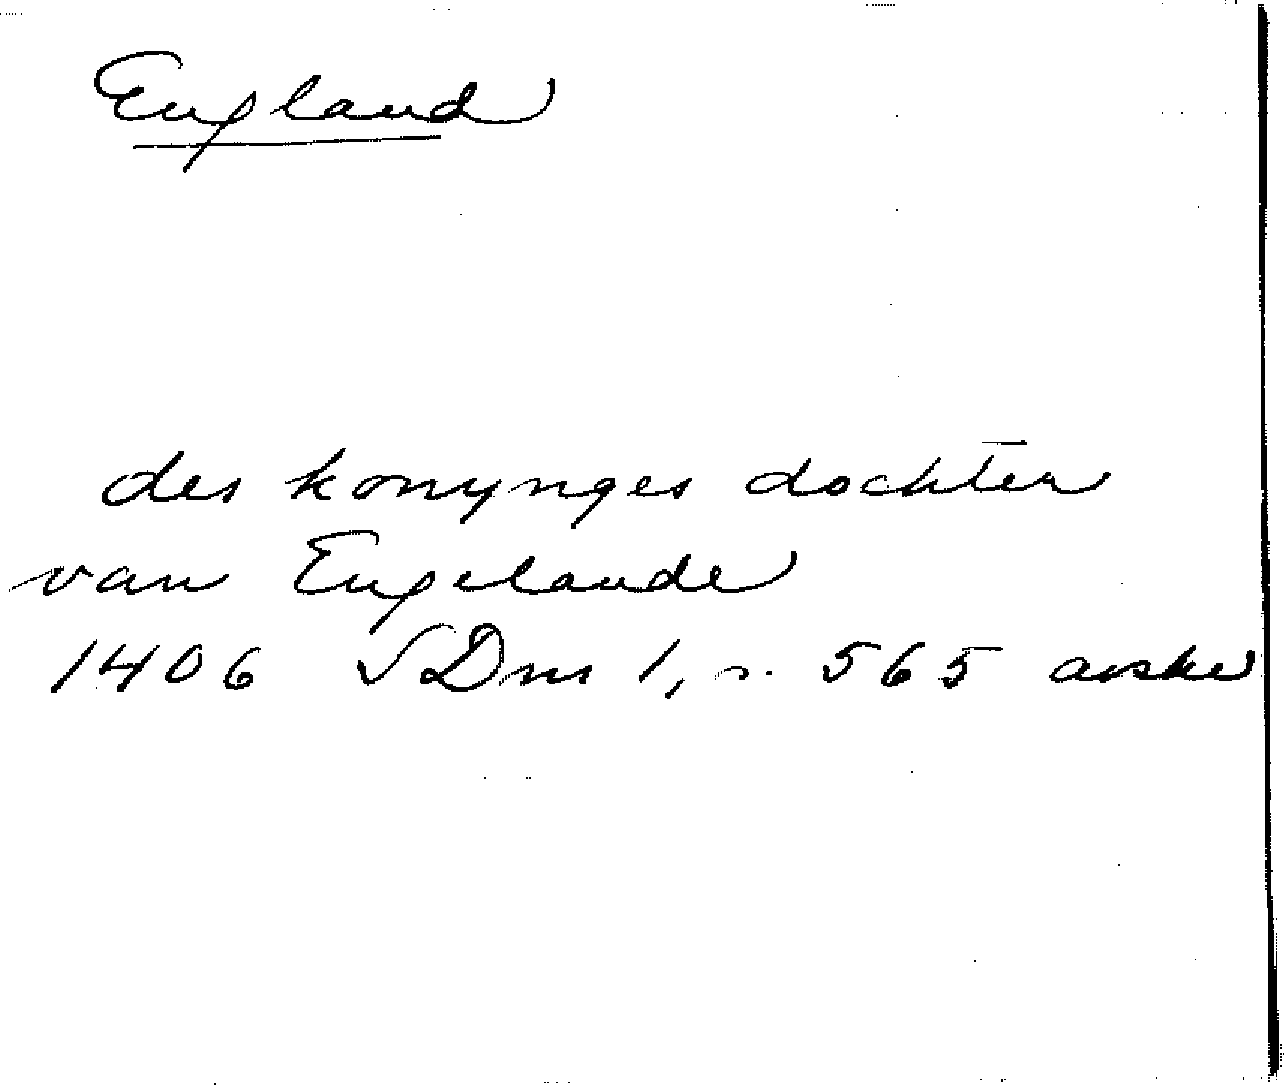 England
des konynges dochter
van Engelande
1406 SDm 1, s. 565 avskr